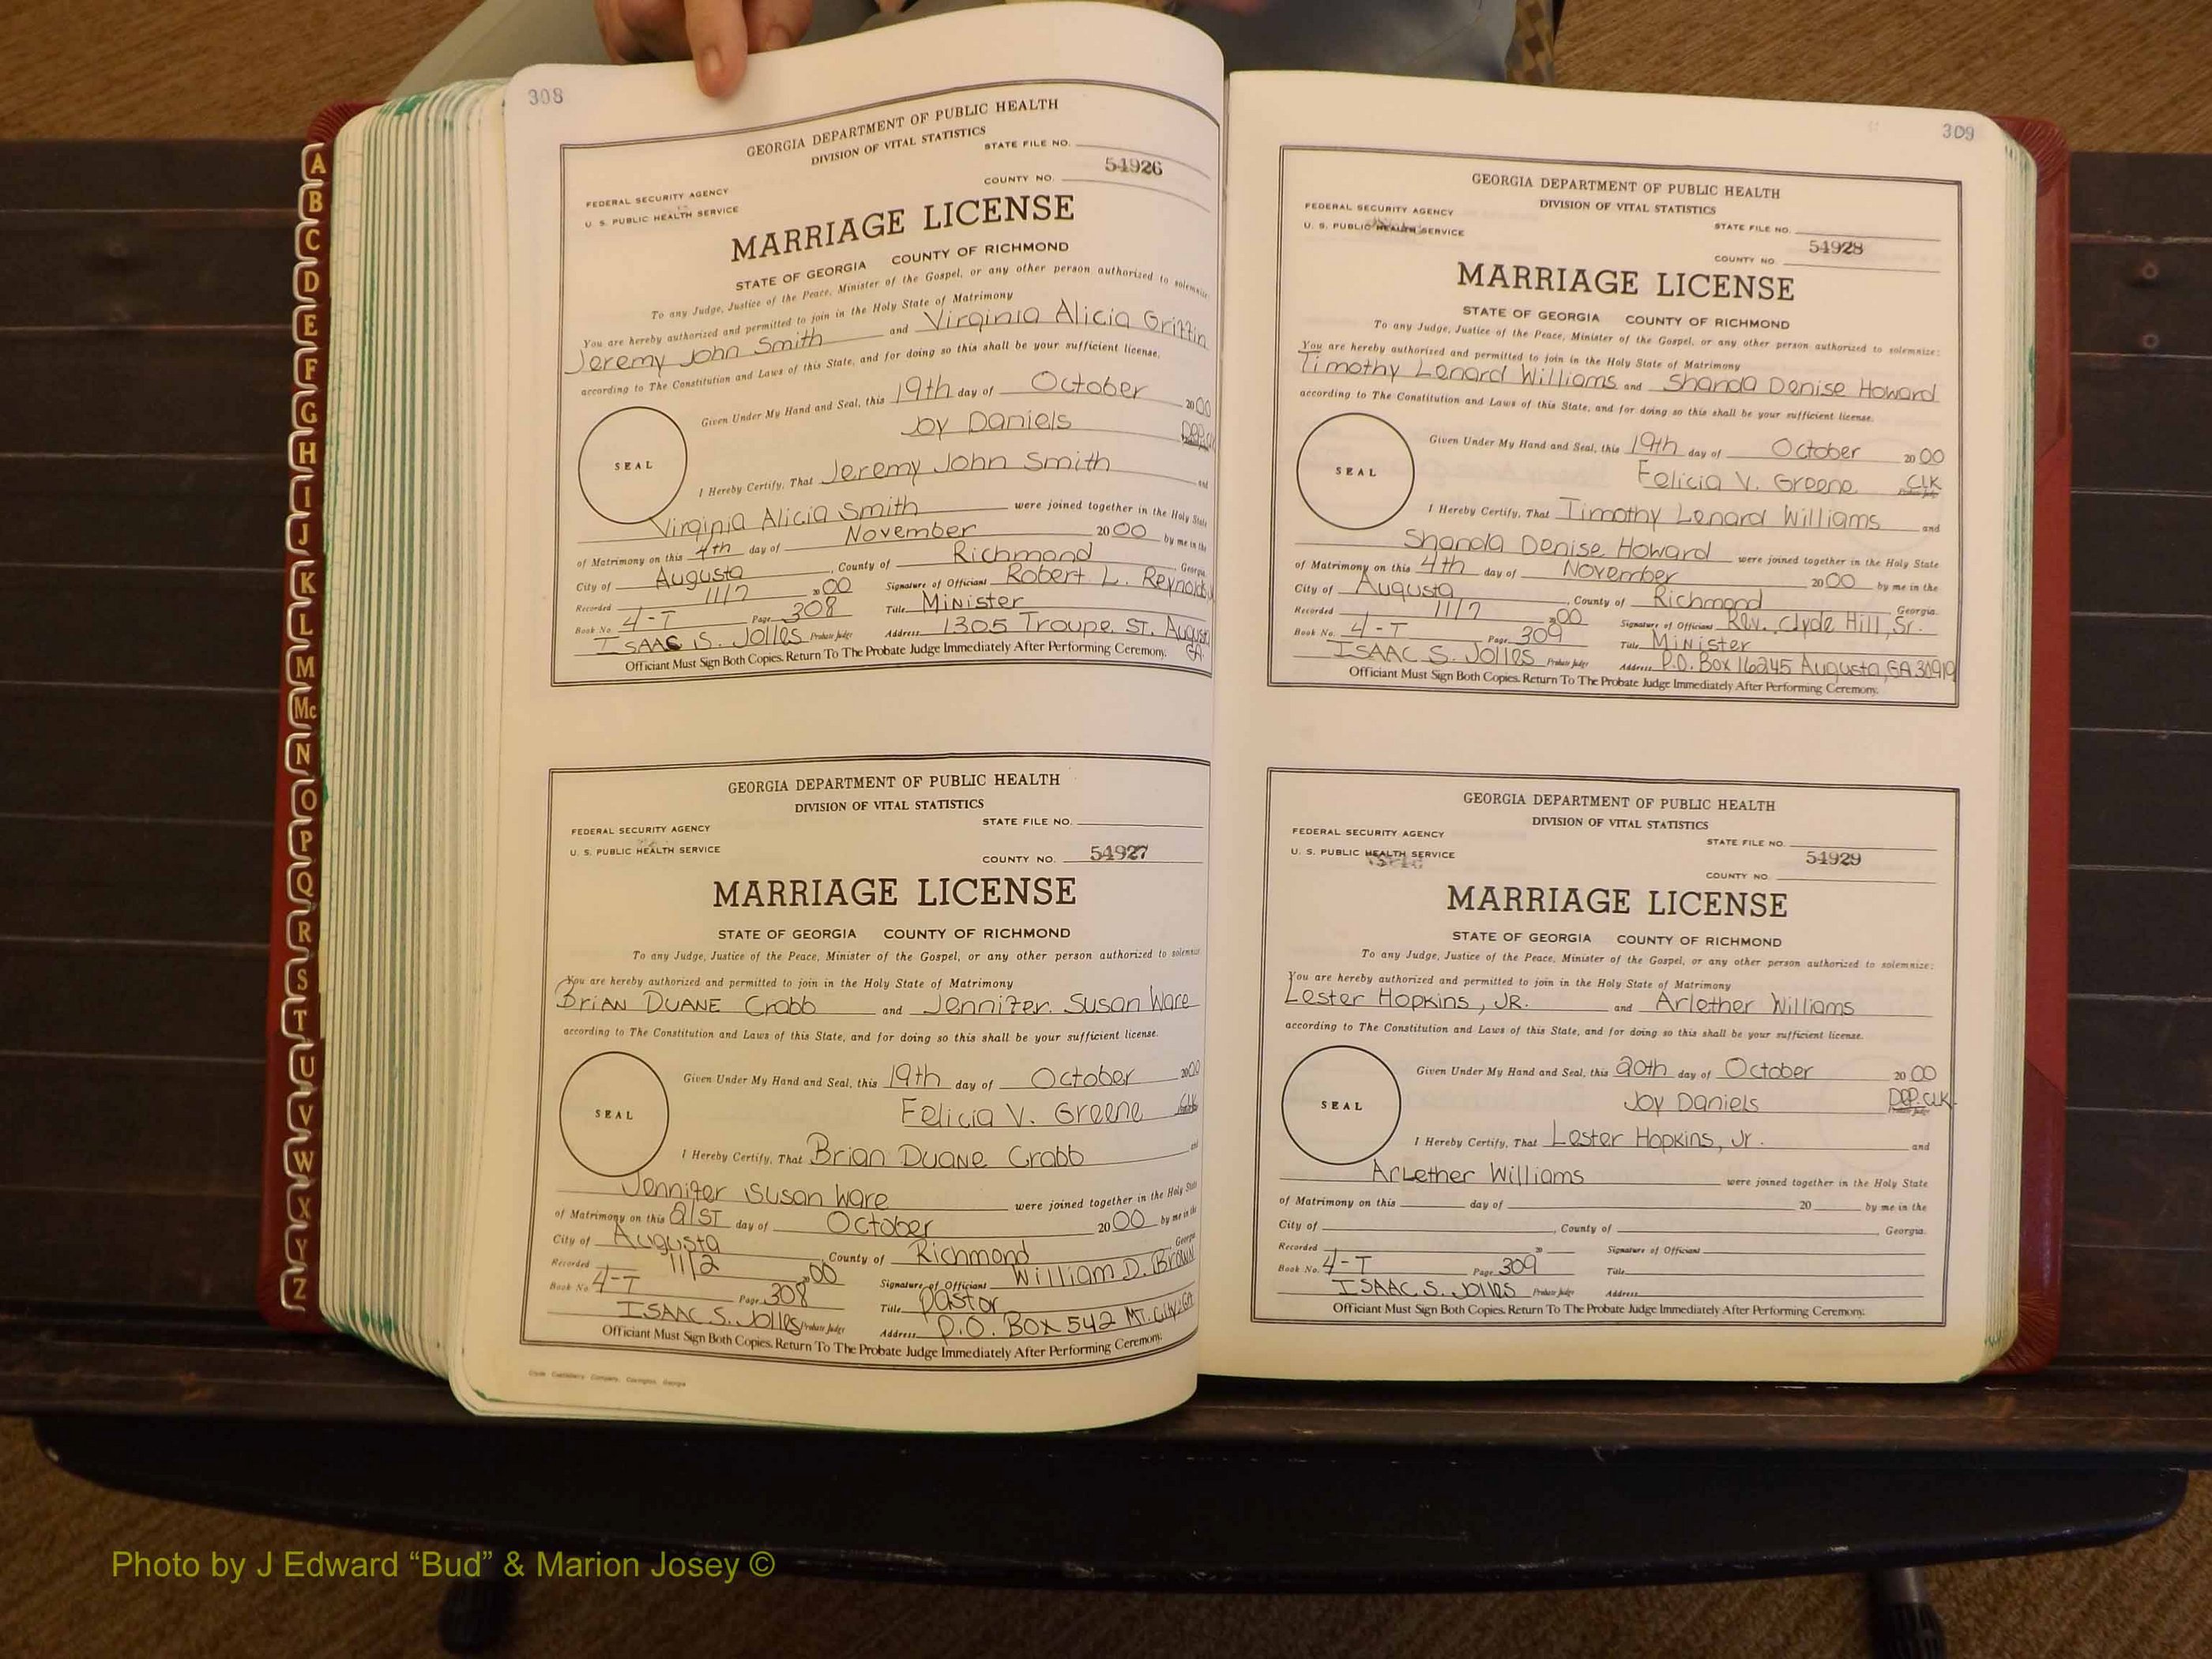 308
GEORGIA DEPARTMENT OF PUBLIC HEALTH
DIVISION OF VITAL STATISTICS
STATE FILE NO.
54926
FEDERAL SECURITY AGENCY
COUNTY NO.
U. S. PUBLIC HEALTH SERVICE
MARRIAGE LICENSE
STATE OF GEORGIA COUNTY OF RICHMOND
To any Judge, Justice of the Peace, Minister of the Gospel, or any other person authorized to solemnize:
You are hereby authorized and permitted to join in the Holy State of Matrimony
Jeremy John Smith and Virginia Alicia Griffin
according to The Constitution and Laws of this State, and for doing so this shall be your sufficient license.
Given Under My Hand and Seal, this 19th day of October 2000
Joy Daniels
SEAL
I Hereby Certify, That Jeremy John Smith and
Virginia Alicia Smith were joined together in the Holy State
of Matrimony on this 4th day of November 2000 by me in the
City of Augusta, County of Richmond Georgia.
Recorded 11/7 2000 Signature of Officiant Robert L. Reynolds
Book No. 4-T Page 308 Title Minister
ISAAC S. Jolles Probate Judge Address 1305 Troupe ST. Augusta GA.
Officiant Must Sign Both Copies. Return To The Probate Judge Immediately After Performing Ceremony.
GEORGIA DEPARTMENT OF PUBLIC HEALTH
DIVISION OF VITAL STATISTICS
STATE FILE NO.
FEDERAL SECURITY AGENCY
U. S. PUBLIC HEALTH SERVICE
COUNTY NO. 54927
MARRIAGE LICENSE
STATE OF GEORGIA COUNTY OF RICHMOND
To any Judge, Justice of the Peace, Minister of the Gospel, or any other person authorized to solemnize
You are hereby authorized and permitted to join in the Holy State of Matrimony
Brian DUANE Crabb and Jennifer Susan Ware
according to The Constitution and Laws of this State, and for doing so this shall be your sufficient license.
Given Under My Hand and Seal, this 19th day of October 2000
Felicia V. Greene Clk
SEAL
I Hereby Certify, That Brian Duane Crabb and
Jennifer Susan Ware were joined together in the Holy State
of Matrimony on this 21ST day of October 2000 by me in the
City of Augusta, County of Richmond Georgia
Recorded 11/2 2000 Signature of Officiant William D. Brown
Book No. 4-T Page 308 Title Pastor
ISAAC S. Jolles Probate Judge Address P.O. Box 542 MT.
Officiant Must Sign Both Copies. Return To The Probate Judge Immediately After Performing Ceremony.
309
GEORGIA DEPARTMENT OF PUBLIC HEALTH
DIVISION OF VITAL STATISTICS
FEDERAL SECURITY AGENCY
U. S. PUBLIC HEALTH SERVICE
STATE FILE NO.
54928
COUNTY NO.
MARRIAGE LICENSE
STATE OF GEORGIA COUNTY OF RICHMOND
To any Judge, Justice of the Peace, Minister of the Gospel, or any other person authorized to solemnize:
You are hereby authorized and permitted to join in the Holy State of Matrimony
Timothy Lenard Williams and Shanda Denise Howard
according to The Constitution and Laws of this State, and for doing so this shall be your sufficient license.
Given Under My Hand and Seal, this 19th day of October 2000
Felicia V. Greene CLK
SEAL
Probate Judge
I Hereby Certify, That Timothy Lenard Williams and
Shanda Denise Howard were joined together in the Holy State
of Matrimony on this 4th day of November 2000 by me in the
City of Augusta, County of Richmond Georgia.
Recorded 11/7 2000 Signature of Officiant Rev. Clyde Hill, Sr.
Book No. 4-T Page 309 Title Minister
ISAAC S. Jolles Probate Judge Address P.O. Box 16245 Augusta, GA 30919
Officiant Must Sign Both Copies. Return To The Probate Judge Immediately After Performing Ceremony.
GEORGIA DEPARTMENT OF PUBLIC HEALTH
DIVISION OF VITAL STATISTICS
FEDERAL SECURITY AGENCY
U. S. PUBLIC HEALTH SERVICE
STATE FILE NO.
54929
COUNTY NO.
MARRIAGE LICENSE
STATE OF GEORGIA COUNTY OF RICHMOND
To any Judge, Justice of the Peace, Minister of the Gospel, or any other person authorized to solemnize:
You are hereby authorized and permitted to join in the Holy State of Matrimony
Lester Hopkins, JR. and Arlether Williams
according to The Constitution and Laws of this State, and for doing so this shall be your sufficient license.
Given Under My Hand and Seal, this 20th day of October 2000
Joy Daniels Dep. CLK.
SEAL
Probate Judge
I Hereby Certify, That Lester Hopkins, Jr. and
ArLether Williams were joined together in the Holy State
of Matrimony on this day of 20 by me in the
City of , County of Georgia.
Recorded 20 Signature of Officiant
Book No. 4-T Page 309 Title
ISAAC S. Jolles Probate Judge Address
Officiant Must Sign Both Copies. Return To The Probate Judge Immediately After Performing Ceremony.
A
B
C
D
E
F
G
H
I
J
K
L
M
Mc
N
O
P
Q
R
S
T
U
V
W
X
Y
Z
Photo by J Edward “Bud” & Marion Josey ©